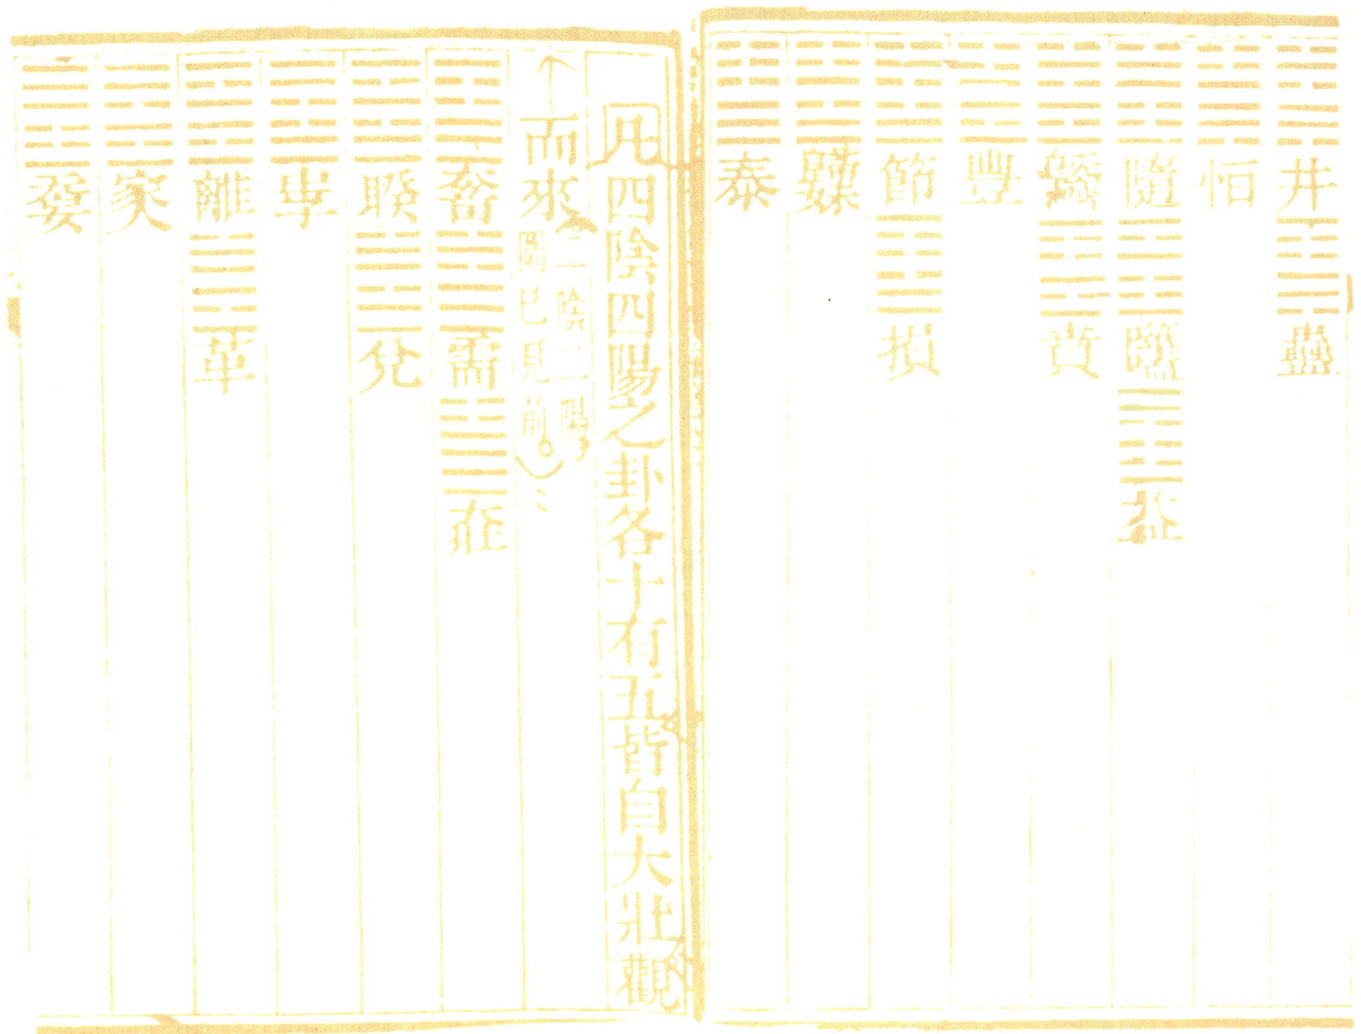 井 蠱
恒
隨 噬嗑 益
既濟 賁
豐
節 損
歸妹
泰
凡四陰四陽之卦各十有五皆自大壯觀
而來二陰二陽圖已見前
大畜 需 大壯
睽 兌
中孚
離 革
家人
无妄